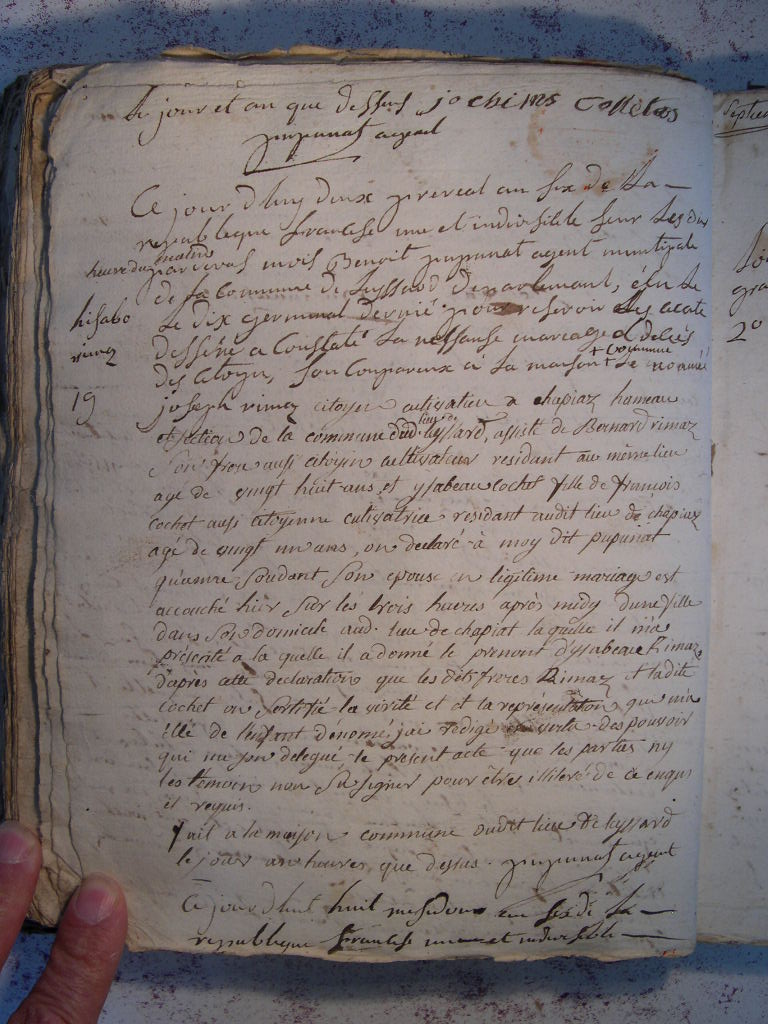 le jour et an que dessus jochims Colletas
pupunat agent
Ce jour d'huy deux prereal an six de La
republeque francese une et indivisible seur les dix
heure du matin
par devas mois Benoit pupunat agent municipale
de la Commune de Lyssard departement, élu le
hisabo
le dix germinal dernié pour reservoir les acate
rimaz
desséné a Constaté la nessanse mareage et décés
des Citoyen, son Compareux a la maison + Commune + le nommé
19
joseph rimaz citoyen cultivateur a chapiaz hameau
et section de la commune dud. lieu de lyssard, assisté de Bernard rimaz
son frere aussi citoyen cultivateur residant au même lieu
agé de vingt huit ans, et ysabeau cochet fille de françois
cochet aussi citoyenne cultivatrice residant audit lieu de chapiaz
agé de vingt un ans, on declaré à moy dit pupunat
son epouse en legitime mariage est
accouché hier sur les trois hueres après midy d'une fille
dans son domicile aud. lieu de chapiat laquelle il m'a
présenté a la quelle il a donné le prenom d'ysabeau Rimaz
d'après cette declaration que les dits freres Rimaz et ladite
cochet on sertifié la vérité et et la représentation qui m'a
été de l'enfant dénomé j'ai redigé en vertu des pouvoir
qui me son delegué, le present acte que les parties ny
les temoin non su signer pour être illiteré de ce enquis
et requis.
fait a la maison commune audit lieu de lyssard
le jour an heures que dessus. pupunat agent
Ce jour d'huit huit mesidour an six de la
republeque franscese une et indivisible
Septem
2º